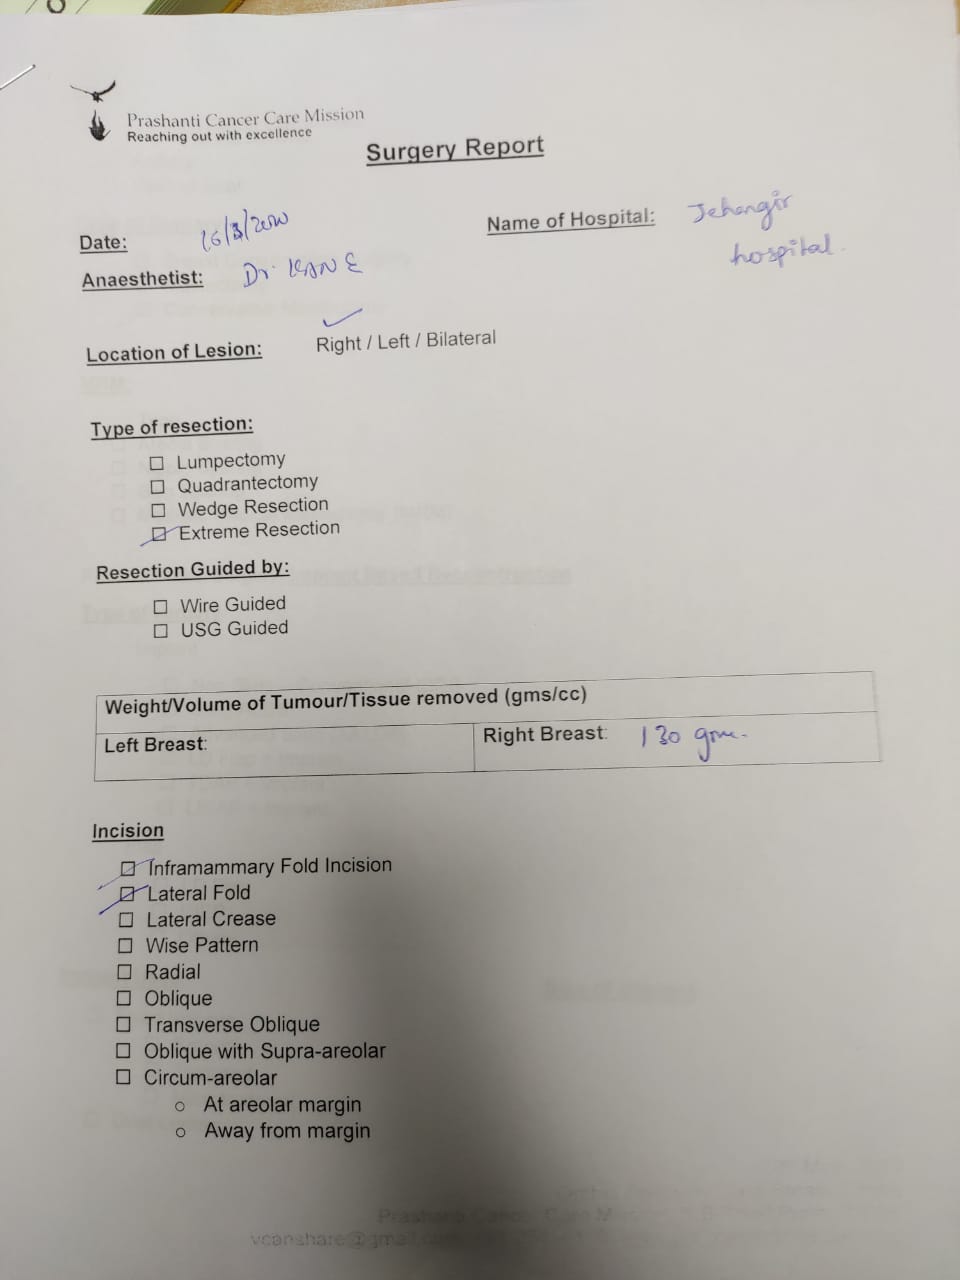 Prashanti Cancer Care Mission
Reaching out with excellence
Surgery Report
Date: 16/3/2020
Name of Hospital: Jehangir hospital.
Anaesthetist: Dr. KANE
Location of Lesion: Right / Left / Bilateral
Type of resection:
☐ Lumpectomy
☐ Quadrantectomy
☐ Wedge Resection
☑ Extreme Resection
Resection Guided by:
☐ Wire Guided
☐ USG Guided
Weight/Volume of Tumour/Tissue removed (gms/cc)
Left Breast:
Right Breast: 130 gm.
Incision
☑ Inframammary Fold Incision
☑ Lateral Fold
☐ Lateral Crease
☐ Wise Pattern
☐ Radial
☐ Oblique
☐ Transverse Oblique
☐ Oblique with Supra-areolar
☐ Circum-areolar
○ At areolar margin
○ Away from margin